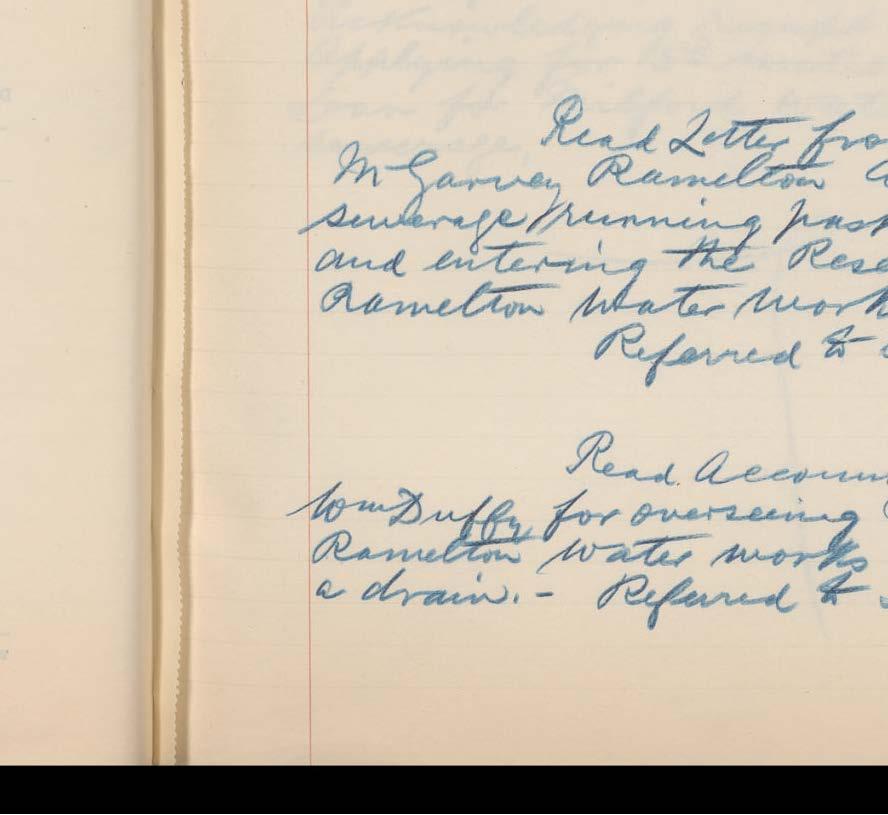 Read Letter fro
McGarvey Ramelton
sewerage running past
and entering the Rese
Ramelton Water Work
Referred to
Read Accoun
Wm Duffy for overseeing
Ramelton Water works
a drain. - Referred to